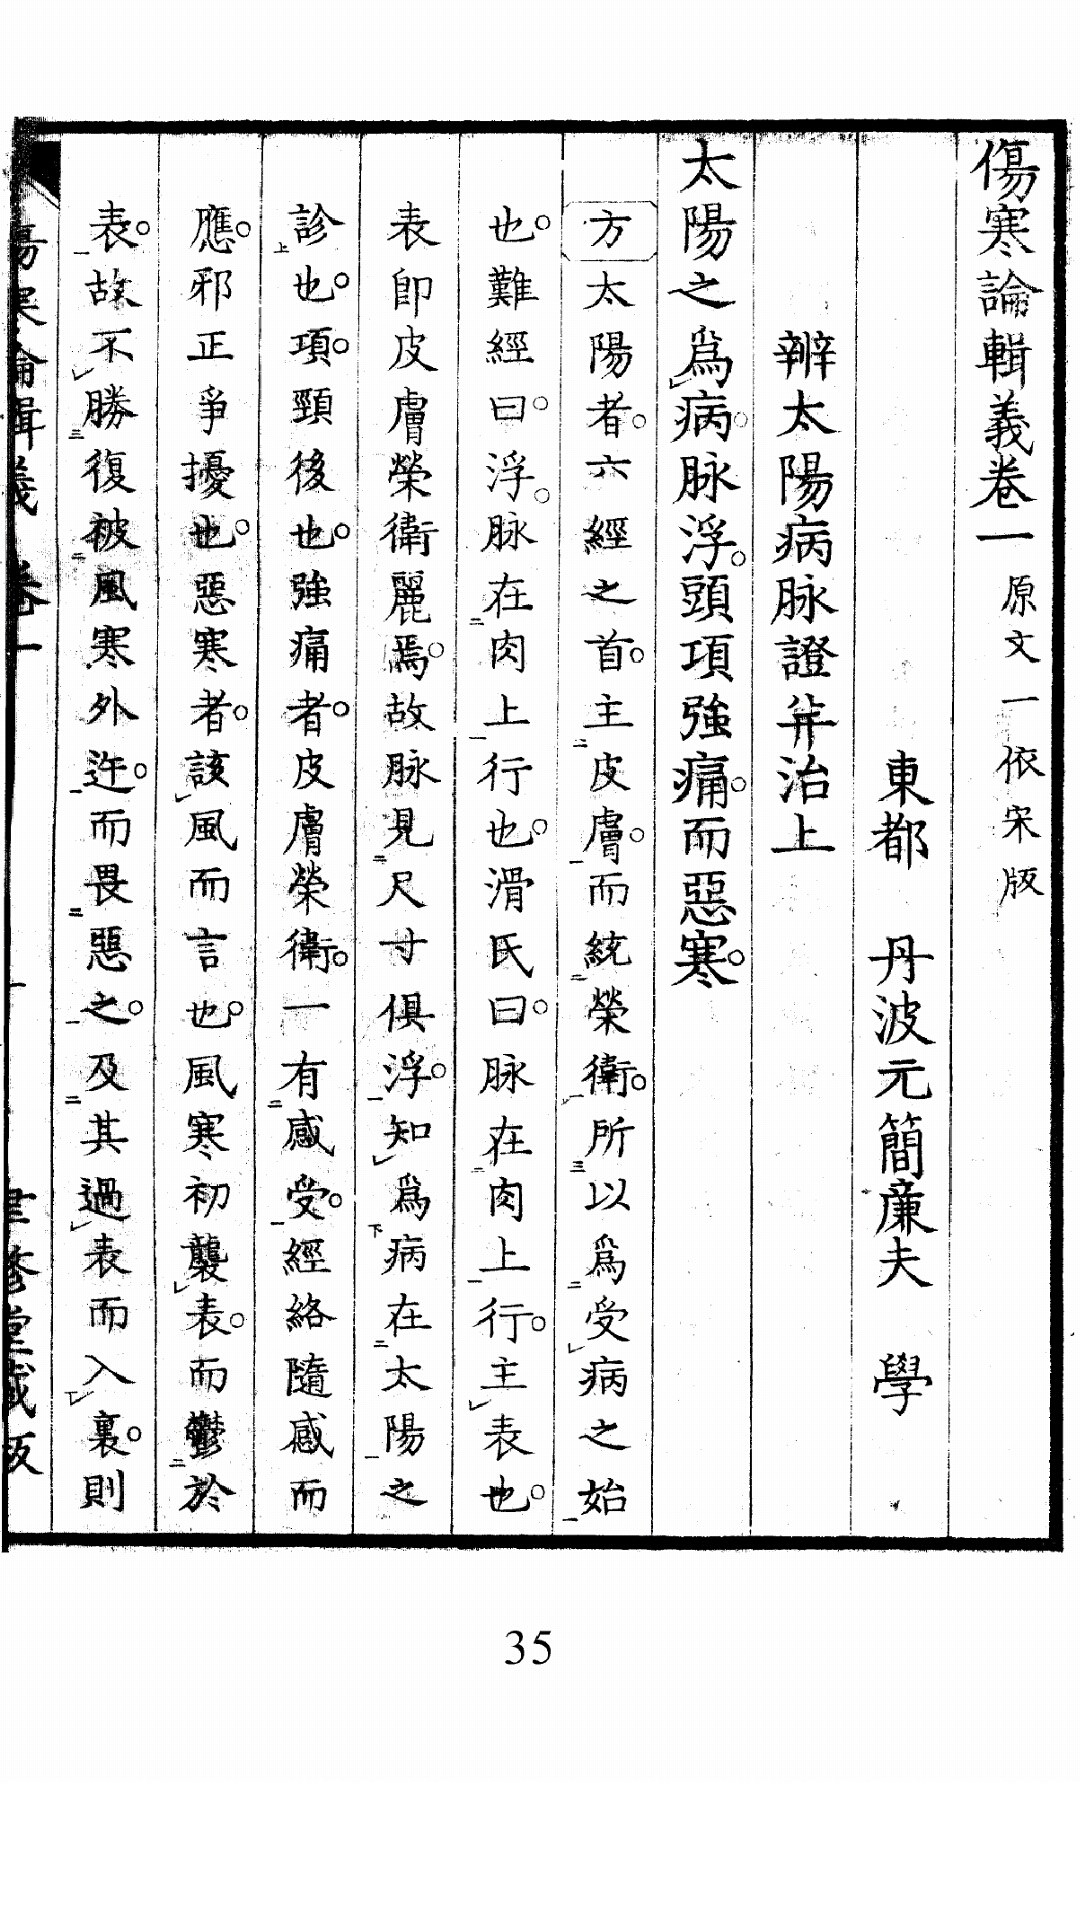 傷寒論輯義卷一 原文一依宋版
東都 丹波元簡廉夫 學
辨太陽病脉證并治上
太陽之爲病。脉浮。頭項強痛。而惡寒。
方太陽者。六經之首。主皮膚。而統榮衛。所以爲受病之始
也。難經曰。浮。脉在肉上行也。滑氏曰。脉在肉上行。主表也。
表卽皮膚榮衛麗焉。故脉見尺寸俱浮。知爲病在太陽之
診也。項。頸後也。強痛者。皮膚榮衛。一有感受。經絡隨感而
應。邪正爭擾也。惡寒者。該風而言也。風寒初襲表。而鬱於
表。故不勝復被風寒外迕。而畏惡之。及其過表而入裏。則
傷寒論輯義 卷一 一 聿修堂藏版
35